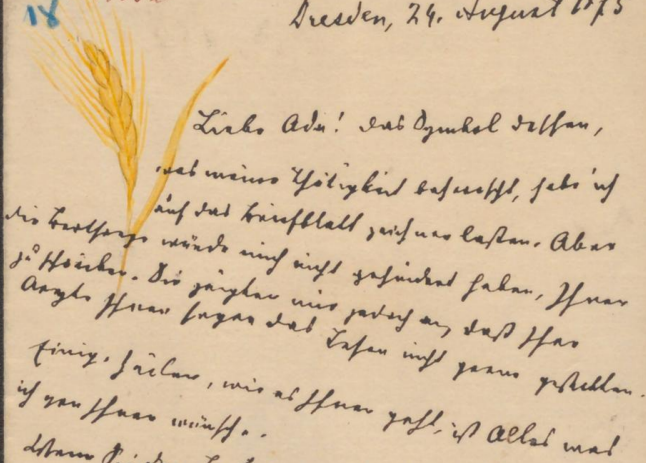 18
Dresden, 24. August 1873
Liebe Ada! Das Symbol dessen,
was meine Thätigkeit beherrscht, habe ich
auf das Briefblatt zeichnen lassen. Aber
die würde mich nicht gehindert haben, Ihnen
zu schreiben. Sie zeigten mir jedoch an, daß Ihre
Aerzte Ihnen sogar das Lesen nicht gerne gestatten.
Einzig hören, wie es Ihnen geht, ist Alles was
ich von Ihnen wünsche.
Wenn